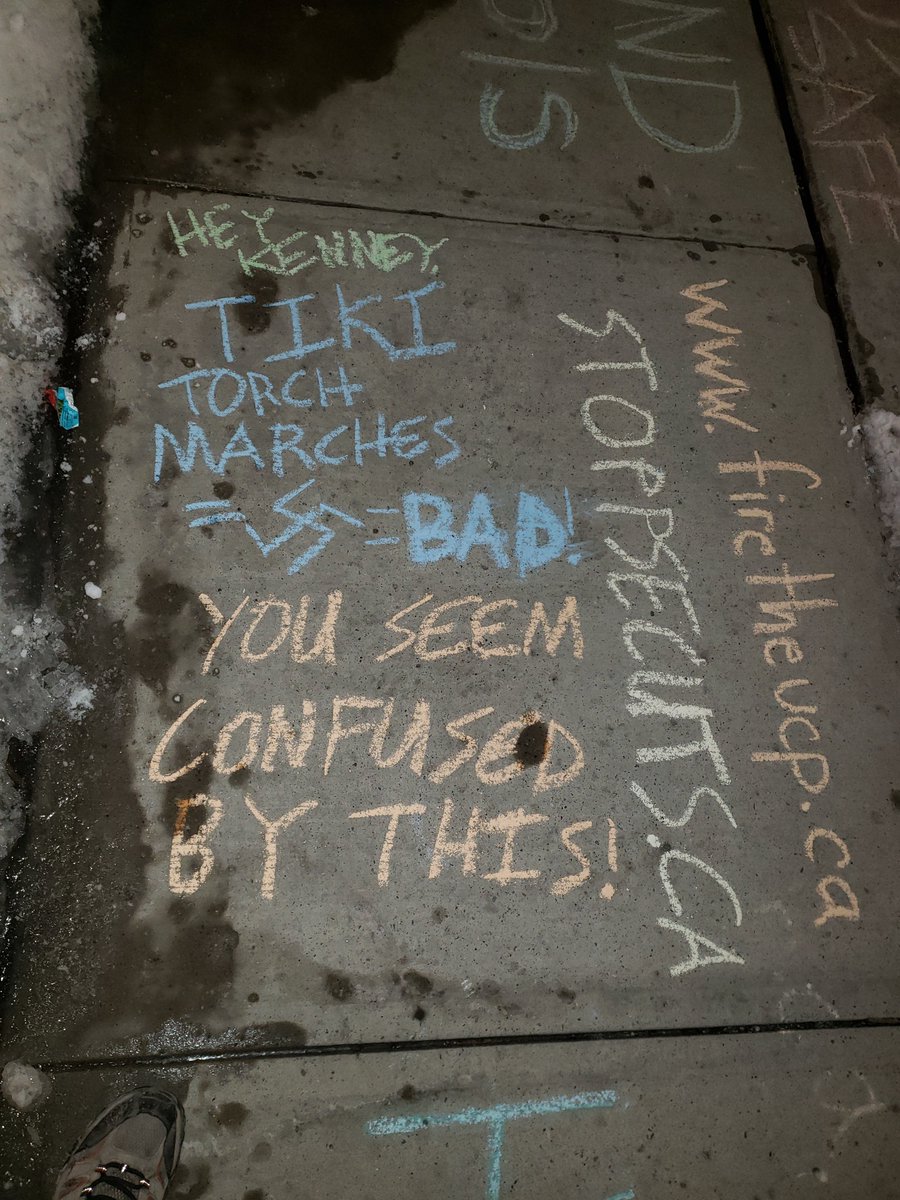 HEY
KENNEY,
TIKI
TORCH
MARCHES
= 卐 = BAD!
YOU SEEM
CONFUSED
BY THIS!
STOPPSECUTS.CA
www.firetheucp.ca
ND
SAFE